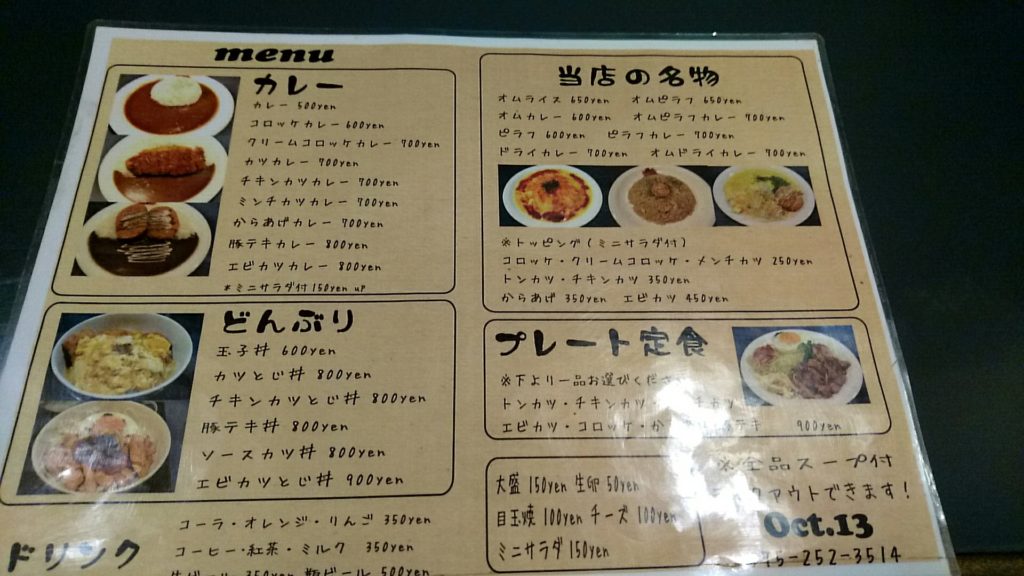 menu
カレー
カレー 500yen
コロッケカレー 600yen
クリームコロッケカレー 700yen
カツカレー 700yen
チキンカツカレー 700yen
ミンチカツカレー 700yen
からあげカレー 700yen
豚テキカレー 800yen
エビカツカレー 800yen
*ミニサラダ付 150yen up
どんぶり
玉子丼 600yen
カツとじ丼 800yen
チキンカツとじ丼 800yen
豚テキ丼 800yen
ソースカツ丼 800yen
エビカツとじ丼 900yen
ドリンク
コーラ・オレンジ・りんご 350yen
コーヒー・紅茶・ミルク 350yen
生ビール 350yen 瓶ビール 500yen
当店の名物
オムライス 650yen オムピラフ 650yen
オムカレー 600yen オムピラフカレー 700yen
ピラフ 600yen ピラフカレー 700yen
ドライカレー 700yen オムドライカレー 700yen
※トッピング(ミニサラダ付)
コロッケ・クリームコロッケ・メンチカツ 250yen
トンカツ・チキンカツ 350yen
からあげ 350yen エビカツ 450yen
プレート定食
※下より一品お選びくださ
トンカツ・チキンカツ
エビカツ・コロッケ・か テキ 900yen
大盛 150yen 生卵 50yen
目玉焼 100yen チーズ 100yen
ミニサラダ 150yen
※全品スープ付
クアウトできます!
Oct.13
75-252-3514